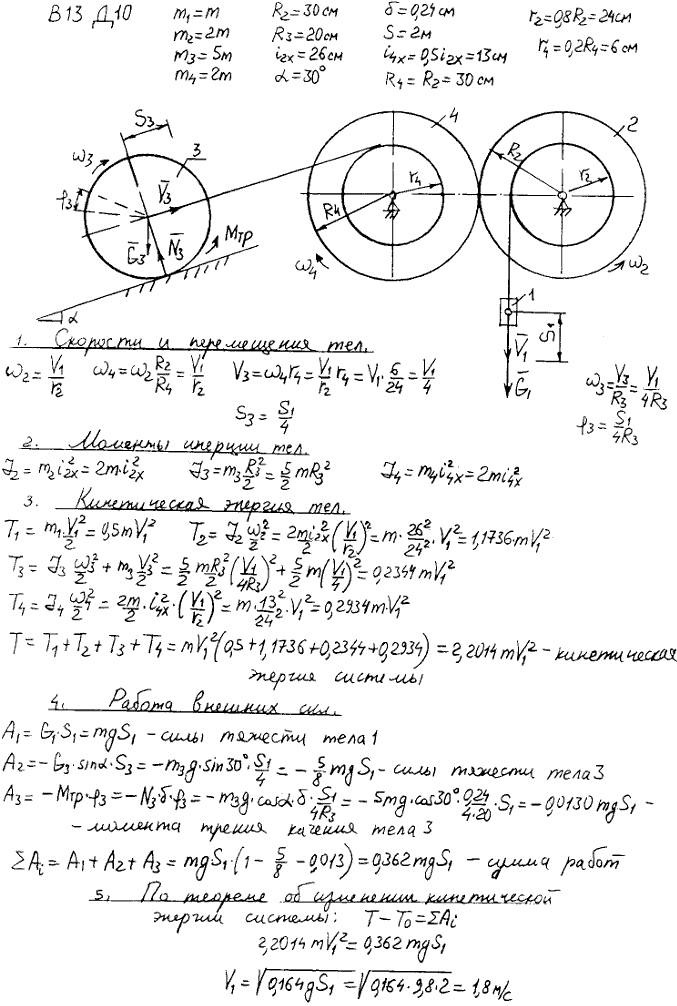 В13 Д10 m₁=m R₂=30см δ=0,24см r₂=0,8R₂=24см
m₂=2m R₃=20см S=2м r₄=0,2R₄=6см
m₃=5m i₂ₓ=26см i₄ₓ=0,5i₂ₓ=13см
m₄=2m α=30° R₄=R₂=30см
S₃ 4 2
ω₃ 3 R₂ r₄ r₂
φ₃ V̄₃ R₄
Ḡ₃ N̄₃ Mтр ω₄ ω₂
α 1 S₁
V̄₁
Ḡ₁
1. Скорости и перемещения тел.
ω₂=V₁/r₂ ω₄=ω₂R₂/R₄=V₁/r₂ V₃=ω₄r₄=V₁/r₂ r₄=V₁·6/24=V₁/4 ω₃=V₃/R₃=V₁/4R₃
S₃=S₁/4 φ₃=S₁/4R₃
2. Моменты инерции тел.
J₂=m₂i₂ₓ²=2m·i₂ₓ² J₃=m₃R₃²/2=5/2 mR₃² J₄=m₄i₄ₓ²=2mi₄ₓ²
3. Кинетическая энергия тел.
T₁=m₁V₁²/2=0,5mV₁² T₂=J₂ω₂²/2=2m/2 i₂ₓ²(V₁/r₂)²=m·26²/24²·V₁²=1,1736·mV₁²
T₃=J₃ω₃²/2+m₃V₃²/2=5/2 mR₃²/2(V₁/4R₃)²+5/2 m(V₁/4)²=0,2344mV₁²
T₄=J₄ω₄²/2=2m/2·i₄ₓ²·(V₁/r₂)²=m·13²/24²·V₁²=0,2934m·V₁²
T=T₁+T₂+T₃+T₄=mV₁²(0,5+1,1736+0,2344+0,2934)=2,2014mV₁² - кинетическая
энергия системы
4. Работа внешних сил.
A₁=G₁·S₁=mgS₁ - силы тяжести тела 1
A₂=-G₃·sinα·S₃=-m₃g·sin30°·S₁/4=-5/8 mgS₁ - силы тяжести тела 3
A₃=-Mтр·φ₃=-N₃·δ·φ₃=-m₃g·cosα·δ·S₁/4R₃=-5mg·cos30°·0,24/4·20·S₁=-0,0130mgS₁ -
- момента трения качения тела 3
ΣAᵢ=A₁+A₂+A₃=mgS₁·(1-5/8-0,013)=0,362mgS₁ - сумма работ
5. По теореме об изменении кинетической
энергии системы: T-T₀=ΣAᵢ
2,2014mV₁²=0,362mgS₁
V₁=√0,164gS₁=√0,164·9,8·2=1,8м/с